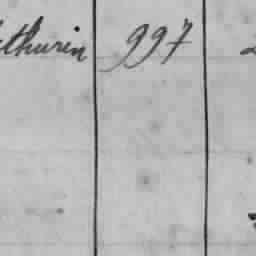 thurin 997